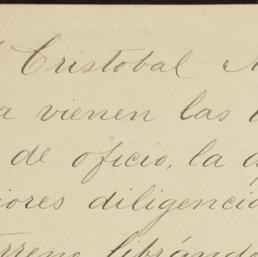 Cristobal
a vienen las
de oficio, la
iores diligencia
rreno librándo